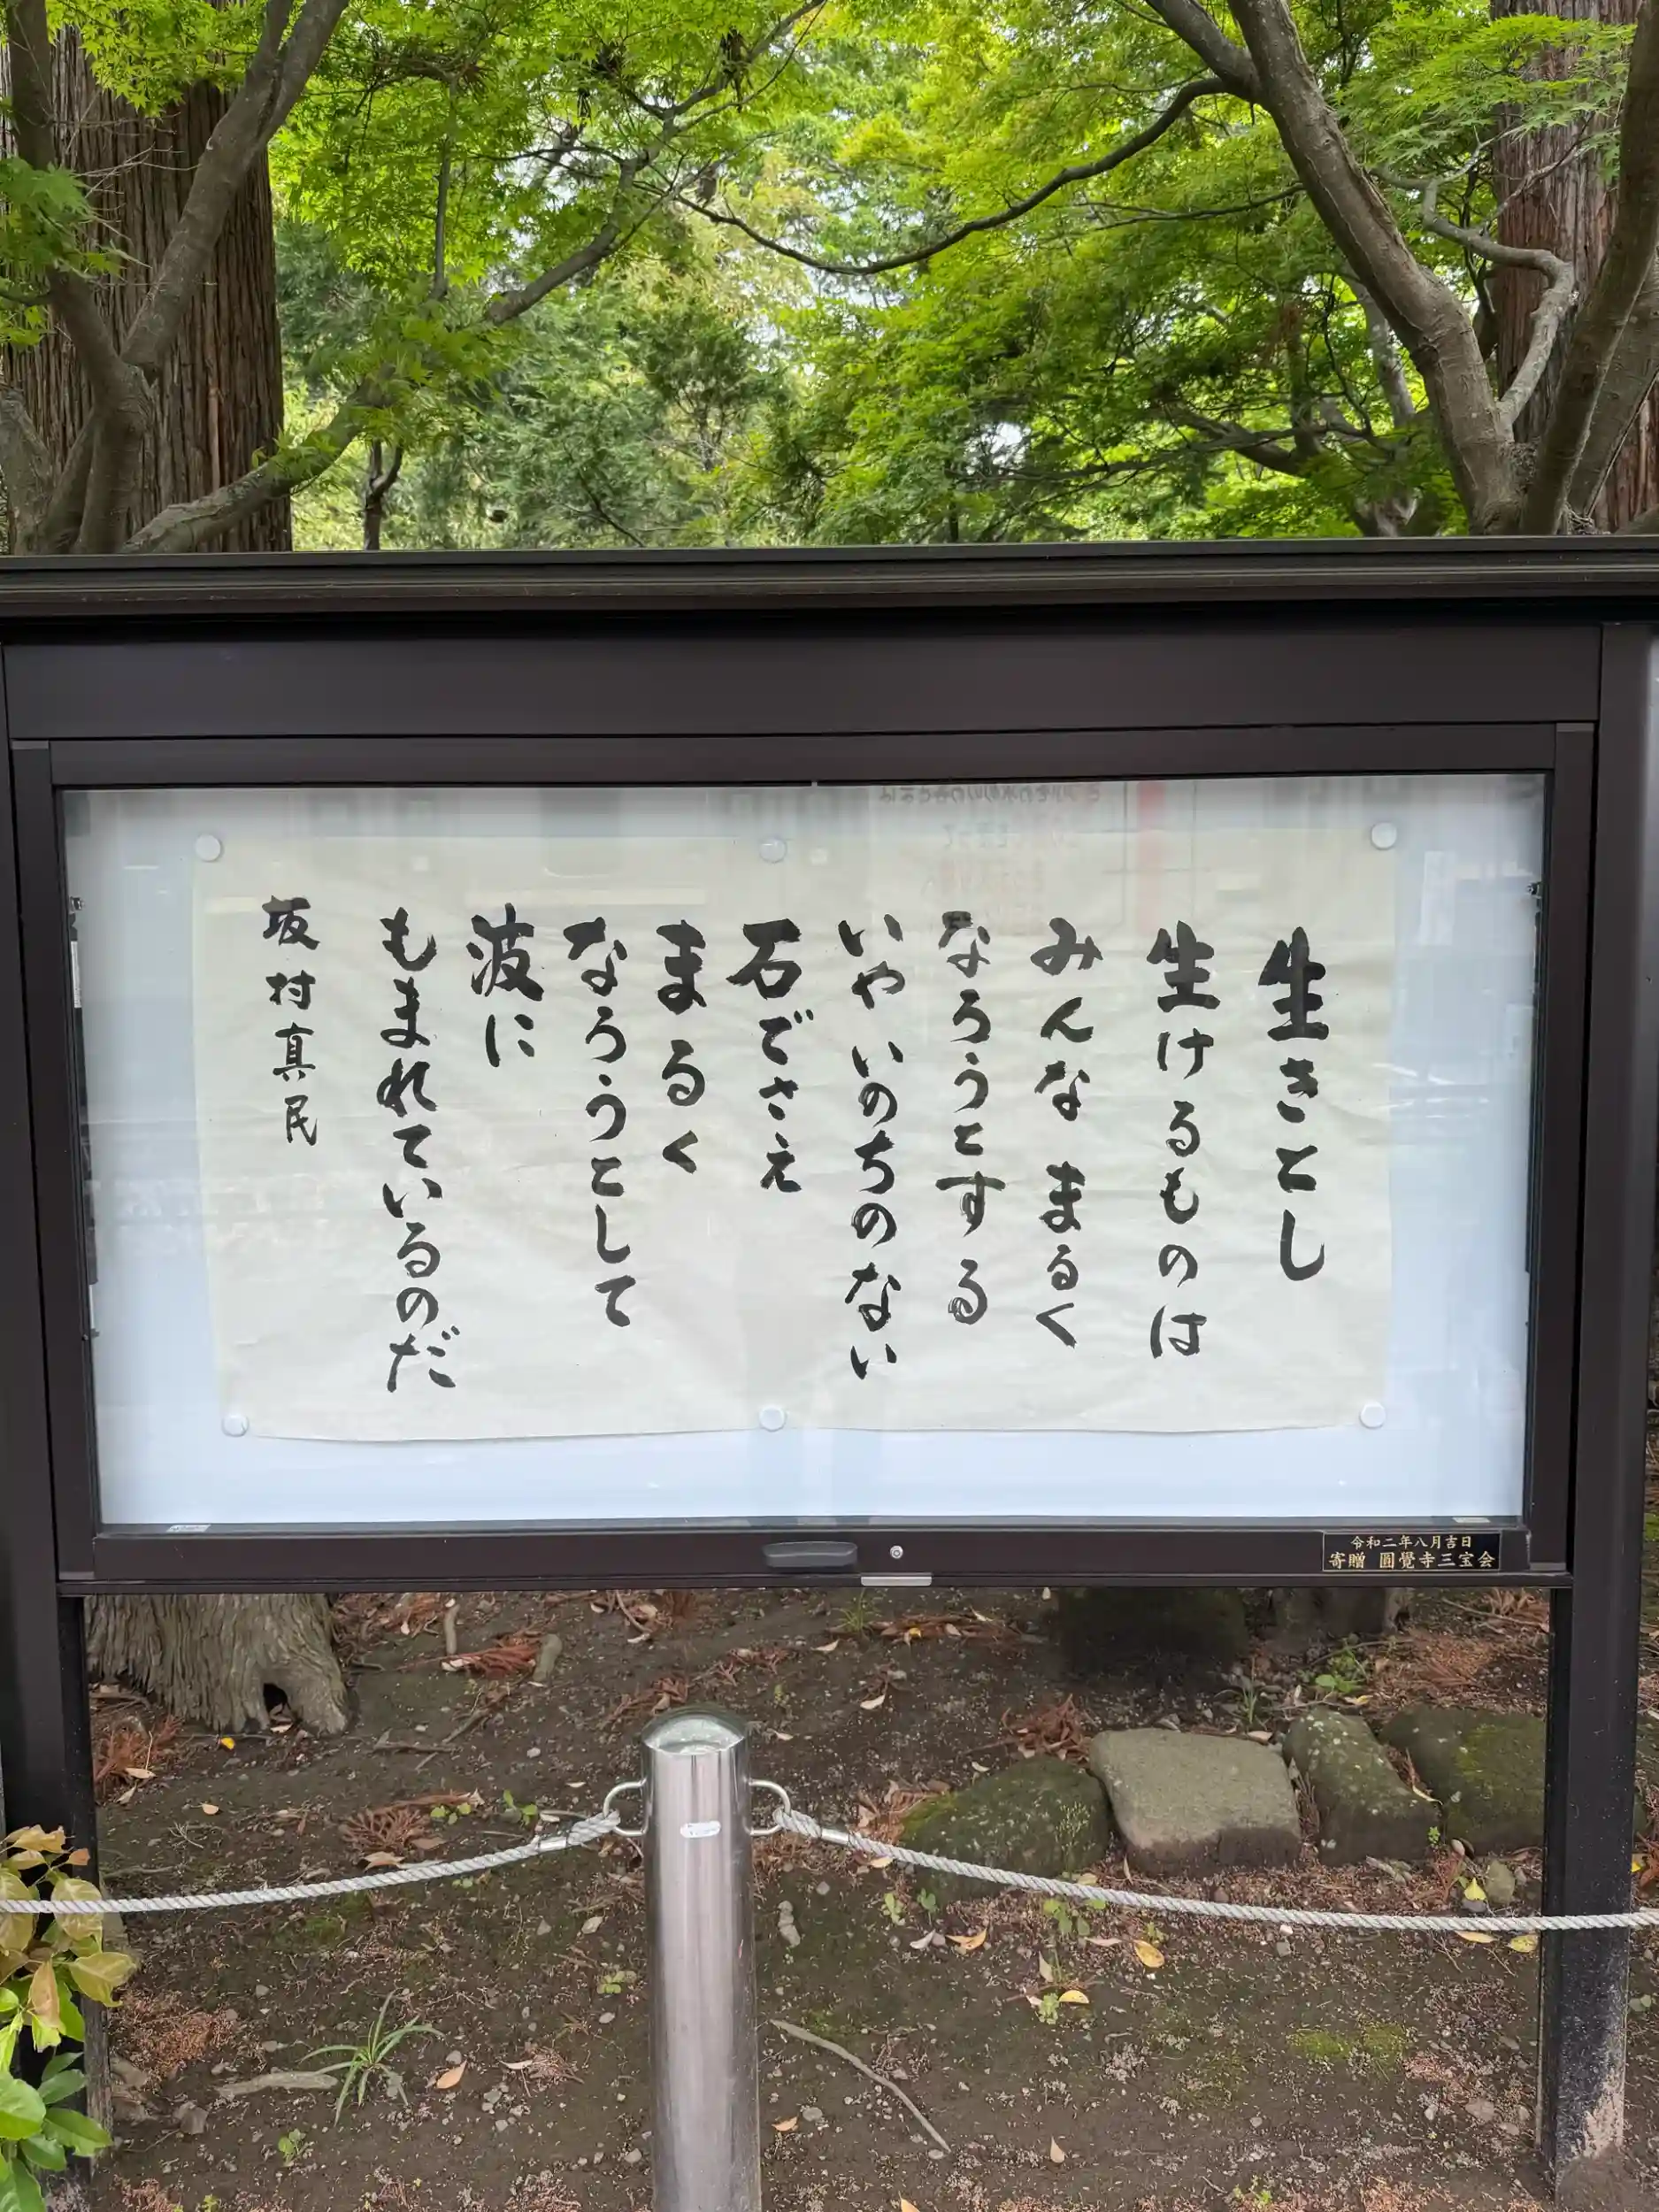 生きとし
生けるものは
みんな まるく
なろうとする
いや いのちのない
石でさえ
まるく
なろうとして
波に
もまれているのだ
坂村真民
令和二年八月吉日
寄贈 圓覺寺三宝会